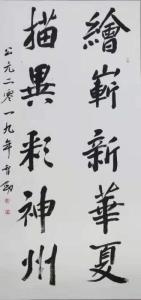 繪嶄新華夏
描異彩神州
公元二零一九年